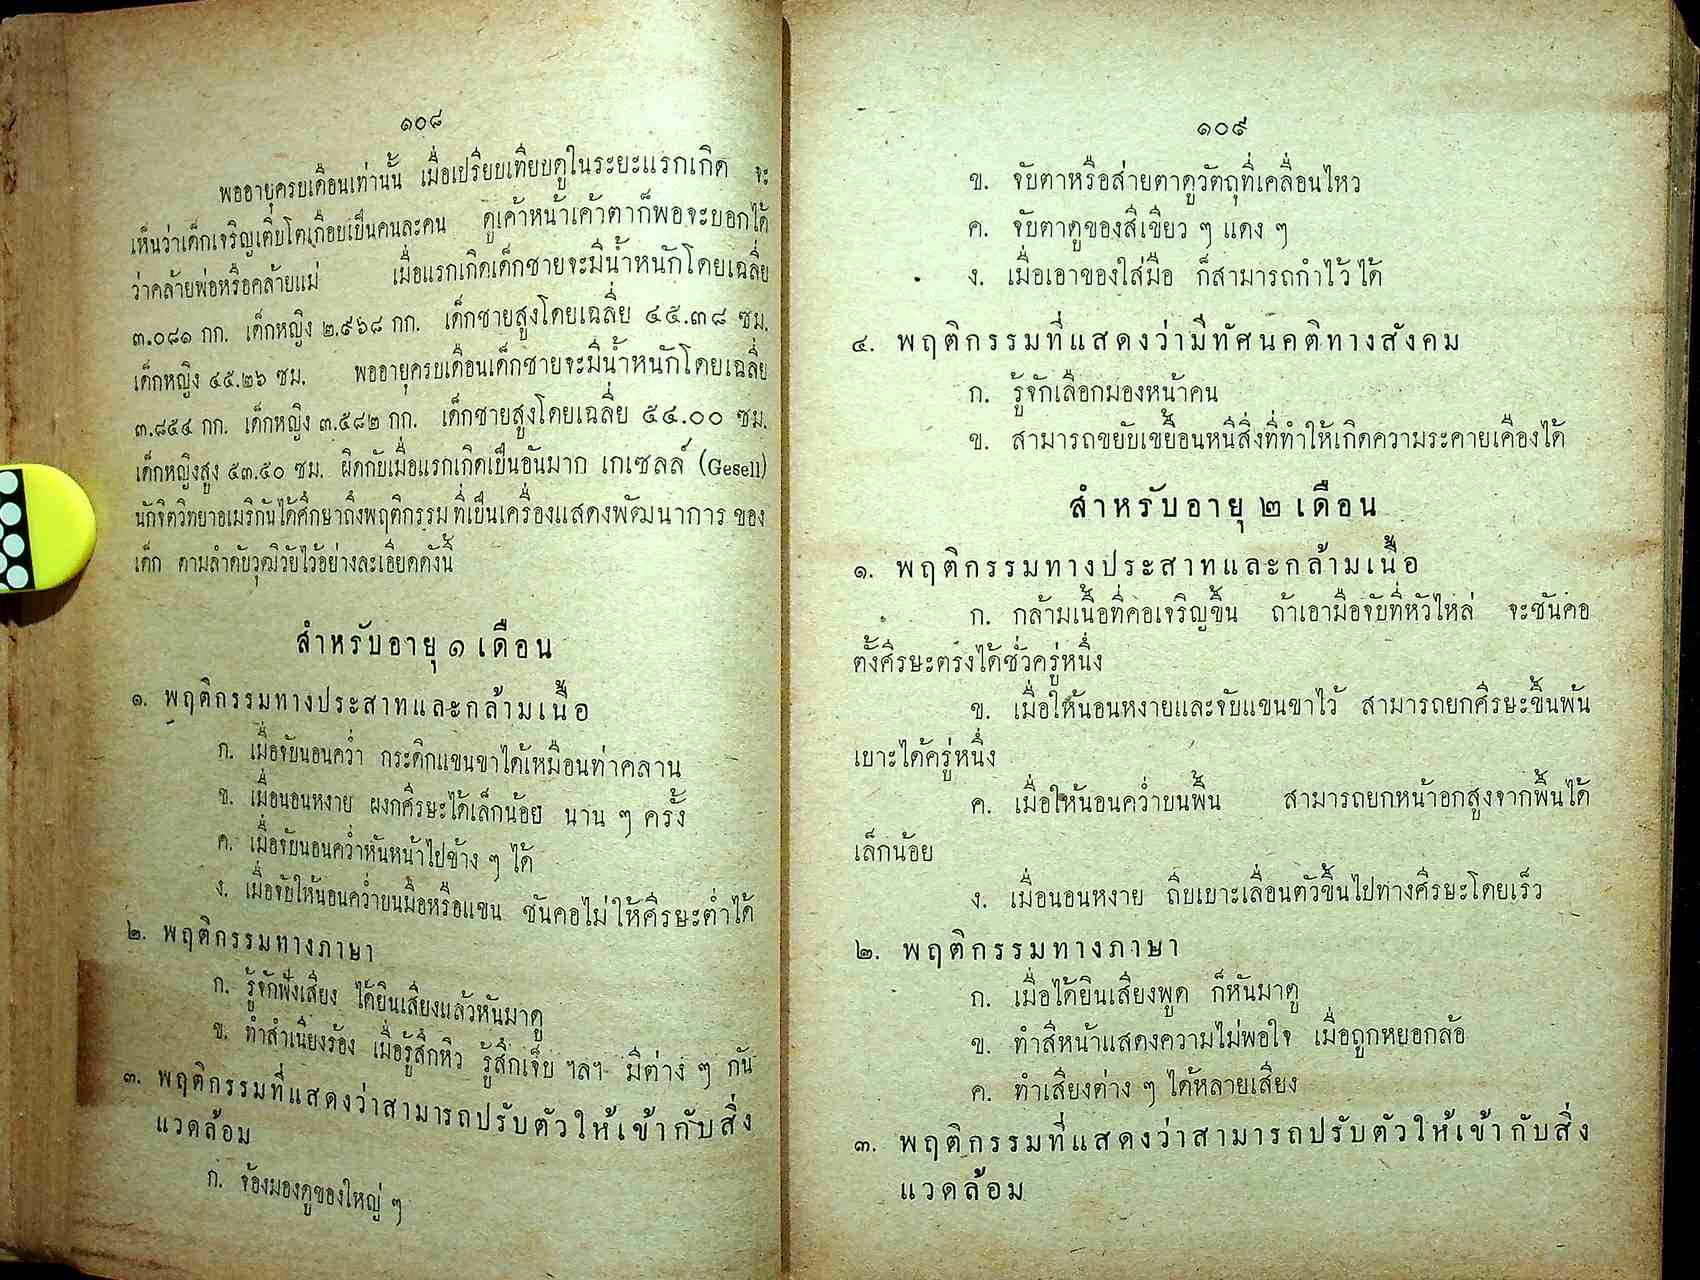 ๑๐๘
พออายุครบเดือนเท่านั้น เมื่อเปรียบเทียบดูในระยะแรกเกิด จะ
เห็นว่าเด็กเจริญเติบโตเกือบเป็นคนละคน ดูเค้าหน้าเค้าตาก็พอจะบอกได้
ว่าคล้ายพ่อหรือคล้ายแม่ เมื่อแรกเกิดเด็กชายจะมีน้ำหนักโดยเฉลี่ย
๓.๐๘๑ กก. เด็กหญิง ๒.๙๖๘ กก. เด็กชายสูงโดยเฉลี่ย ๔๕.๓๘ ซม.
เด็กหญิง ๔๕.๒๖ ซม. พออายุครบเดือนเด็กชายจะมีน้ำหนักโดยเฉลี่ย
๓.๘๕๔ กก. เด็กหญิง ๓.๕๘๒ กก. เด็กชายสูงโดยเฉลี่ย ๕๔.๐๐ ซม.
เด็กหญิงสูง ๕๓.๕๐ ซม. ผิดกับเมื่อแรกเกิดเป็นอันมาก เกเซลล์ (Gesell)
นักจิตวิทยาอเมริกันได้ศึกษาถึงพฤติกรรม ที่เป็นเครื่องแสดงพัฒนาการ ของ
เด็ก ตามลำดับวุฒิวัยไว้อย่างละเอียดดังนี้
สำหรับอายุ ๑ เดือน
๑. พฤติกรรมทางประสาทและกล้ามเนื้อ
ก. เมื่อจับนอนคว่ำ กระดิกแขนขาได้เหมือนท่าคลาน
ข. เมื่อนอนหงาย ผงกศีรษะได้เล็กน้อย นาน ๆ ครั้ง
ค. เมื่อจับนอนคว่ำหันหน้าไปข้าง ๆ ได้
ง. เมื่อจับให้นอนคว่ำบนมือหรือแขน ชันคอไม่ให้ศีรษะต่ำได้
๒. พฤติกรรมทางภาษา
ก. รู้จักฟังเสียง ได้ยินเสียงแล้วหันมาดู
ข. ทำสำเนียงร้อง เมื่อรู้สึกหิว รู้สึกเจ็บ ฯลฯ มีต่าง ๆ กัน
๓. พฤติกรรมที่แสดงว่าสามารถปรับตัวให้เข้ากับสิ่ง
แวดล้อม
ก. จ้องมองดูของใหญ่ ๆ
๑๐๙
ข. จับตาหรือส่ายตาดูวัตถุที่เคลื่อนไหว
ค. จับตาดูของสีเขียว ๆ แดง ๆ
ง. เมื่อเอาของใส่มือ ก็สามารถกำไว้ได้
๔. พฤติกรรมที่แสดงว่ามีทัศนคติทางสังคม
ก. รู้จักเลือกมองหน้าคน
ข. สามารถขยับเขยื้อนหนีสิ่งที่ทำให้เกิดความระคายเคืองได้
สำหรับอายุ ๒ เดือน
๑. พฤติกรรมทางประสาทและกล้ามเนื้อ
ก. กล้ามเนื้อที่คอเจริญขึ้น ถ้าเอามือจับที่หัวไหล่ จะชันคอ
ตั้งศีรษะตรงได้ชั่วครู่หนึ่ง
ข. เมื่อให้นอนหงายและจับแขนขาไว้ สามารถยกศีรษะขึ้นพ้น
เบาะได้ครู่หนึ่ง
ค. เมื่อให้นอนคว่ำบนพื้น สามารถยกหน้าอกสูงจากพื้นได้
เล็กน้อย
ง. เมื่อนอนหงาย ถีบเบาะเลื่อนตัวขึ้นไปทางศีรษะโดยเร็ว
๒. พฤติกรรมทางภาษา
ก. เมื่อได้ยินเสียงพูด ก็หันมาดู
ข. ทำสีหน้าแสดงความไม่พอใจ เมื่อถูกหยอกล้อ
ค. ทำเสียงต่าง ๆ ได้หลายเสียง
๓. พฤติกรรมที่แสดงว่าสามารถปรับตัวให้เข้ากับสิ่ง
แวดล้อม